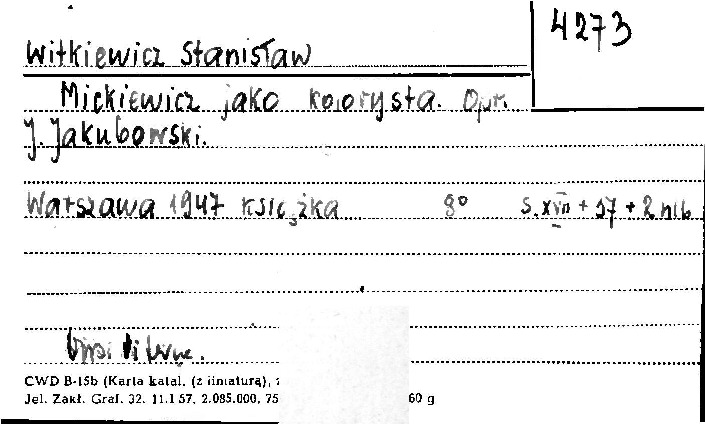 4273
Witkiewicz Stanisław
Mickiewicz jako kolorysta. Opr.
J. Jakubowski.
Warszawa 1947 Książka 8° s. XVII + 57 + 2 nlb
CWD B-15b (Karta katal. (z liniaturą),
Jel. Zakł. Graf. 32. 11.1 57. 2.085.000, 75 60 g